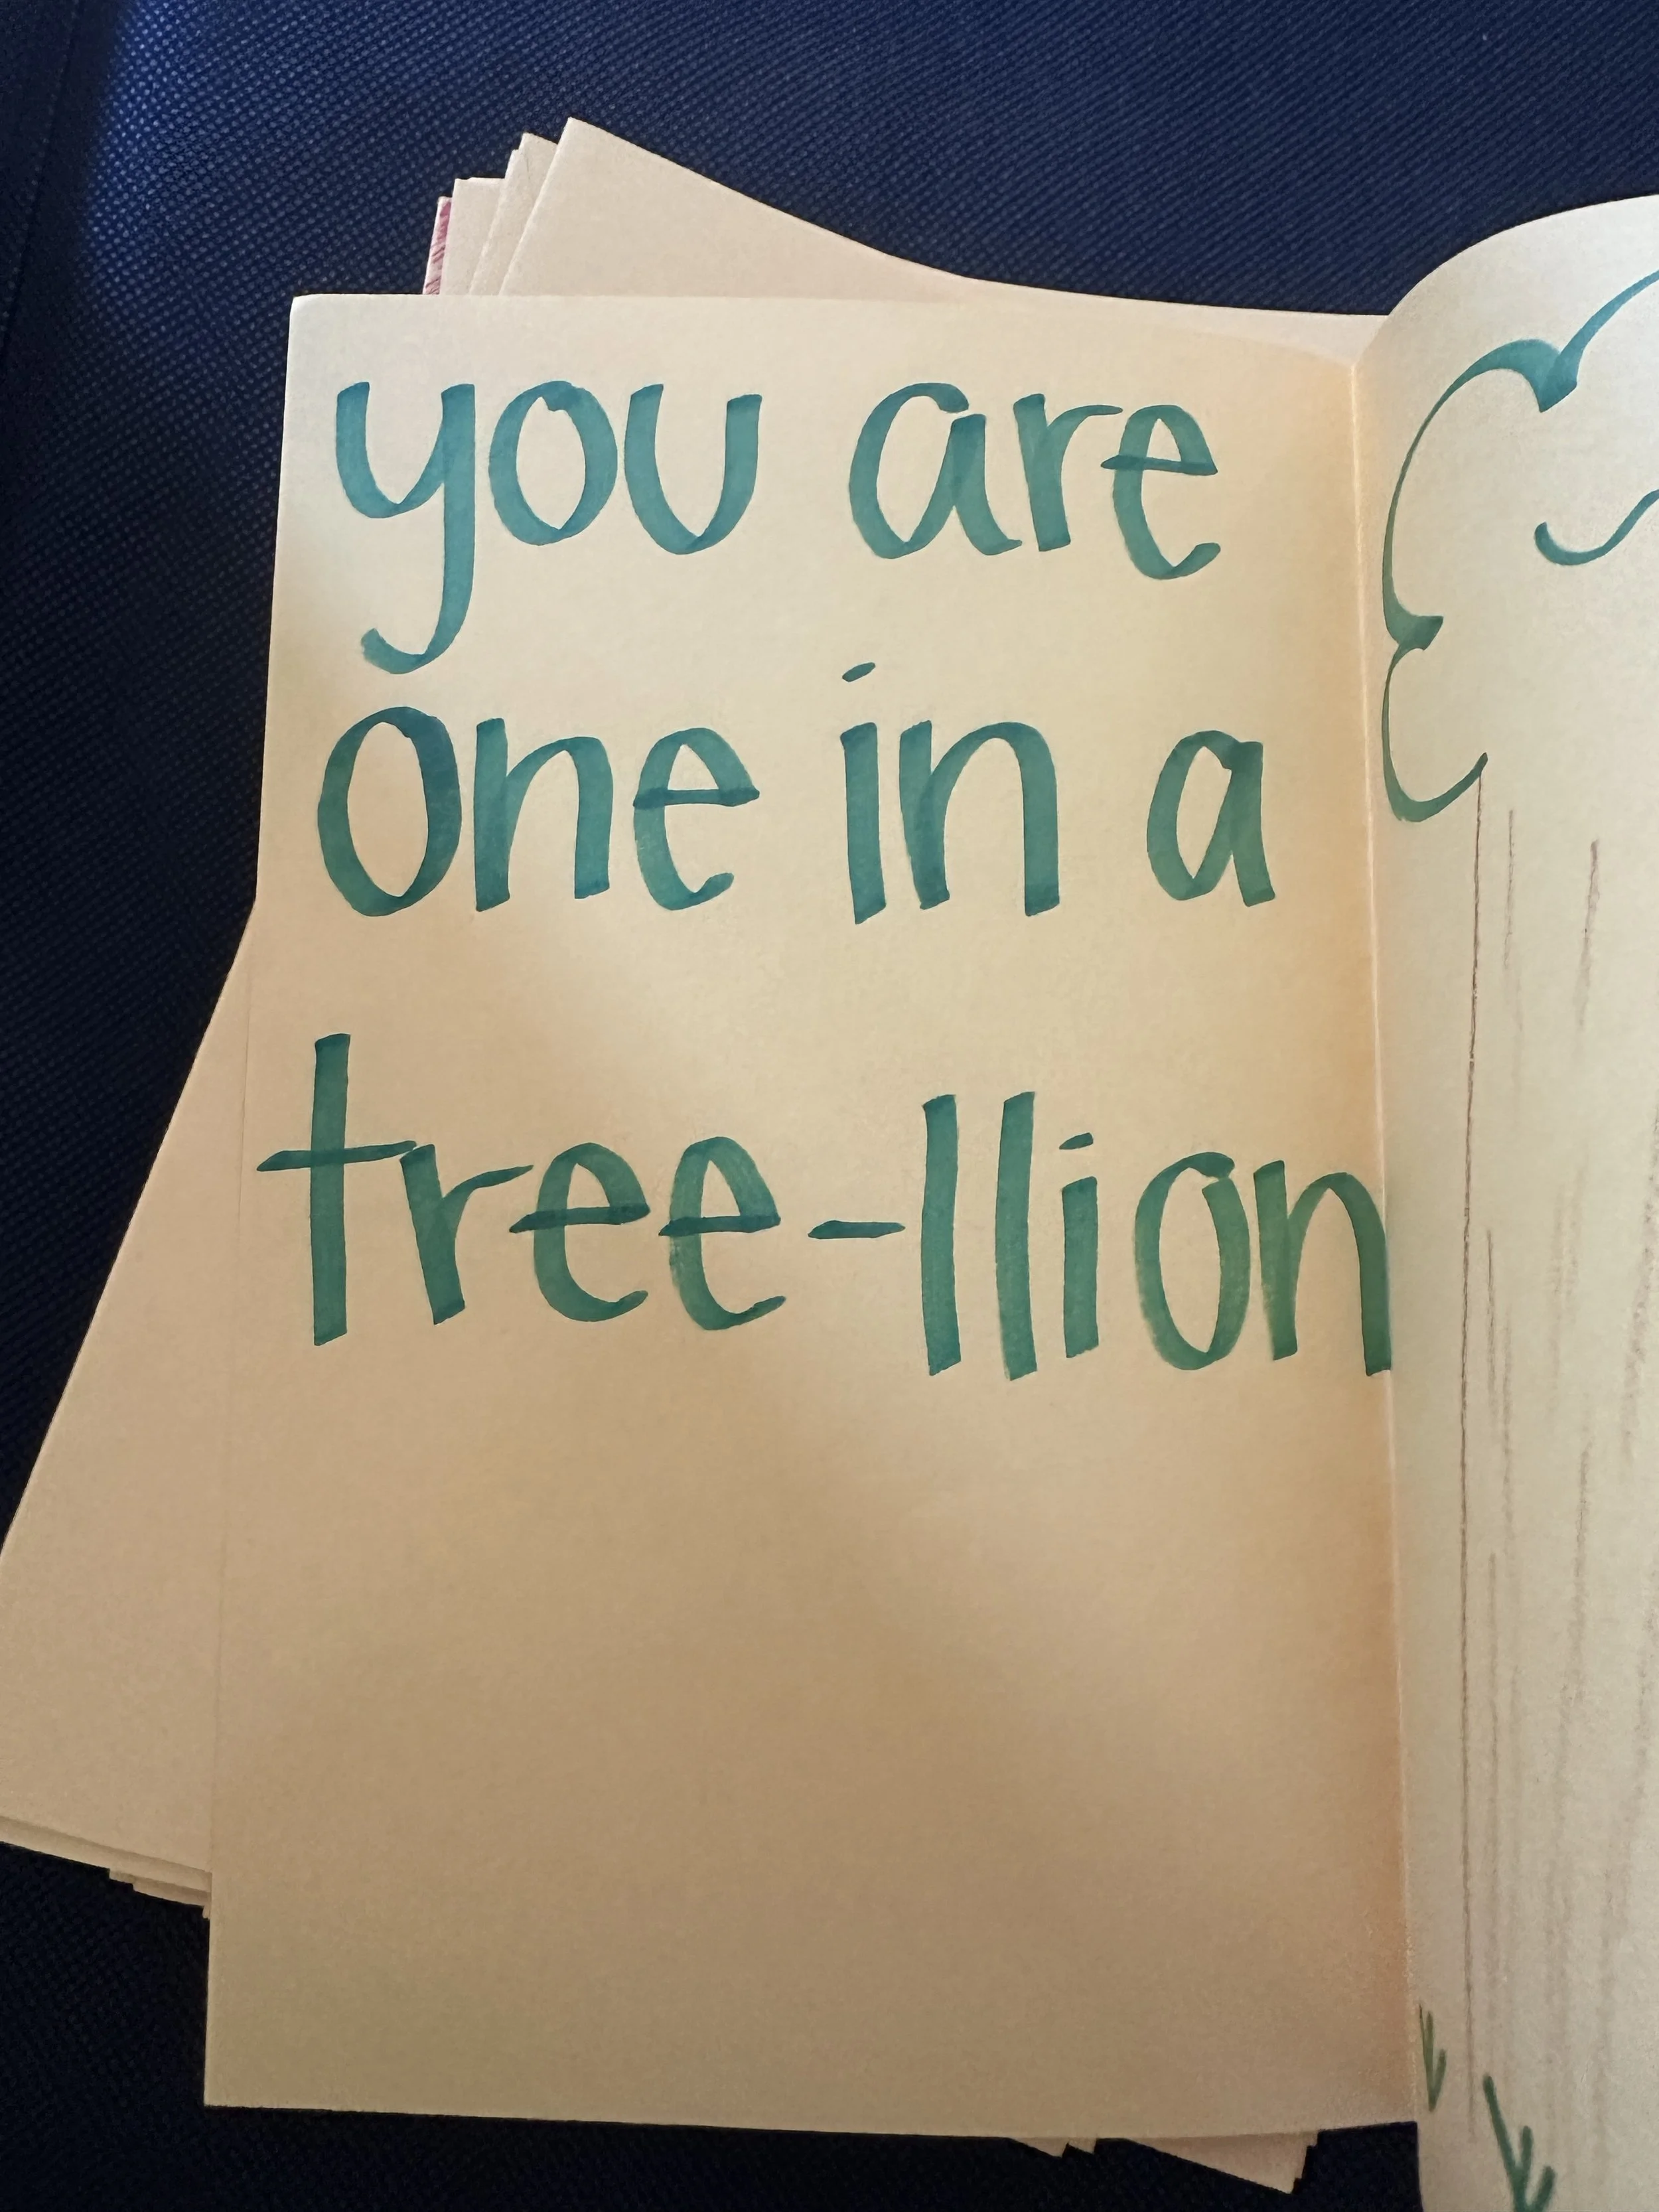 you are
one in a
tree-llion